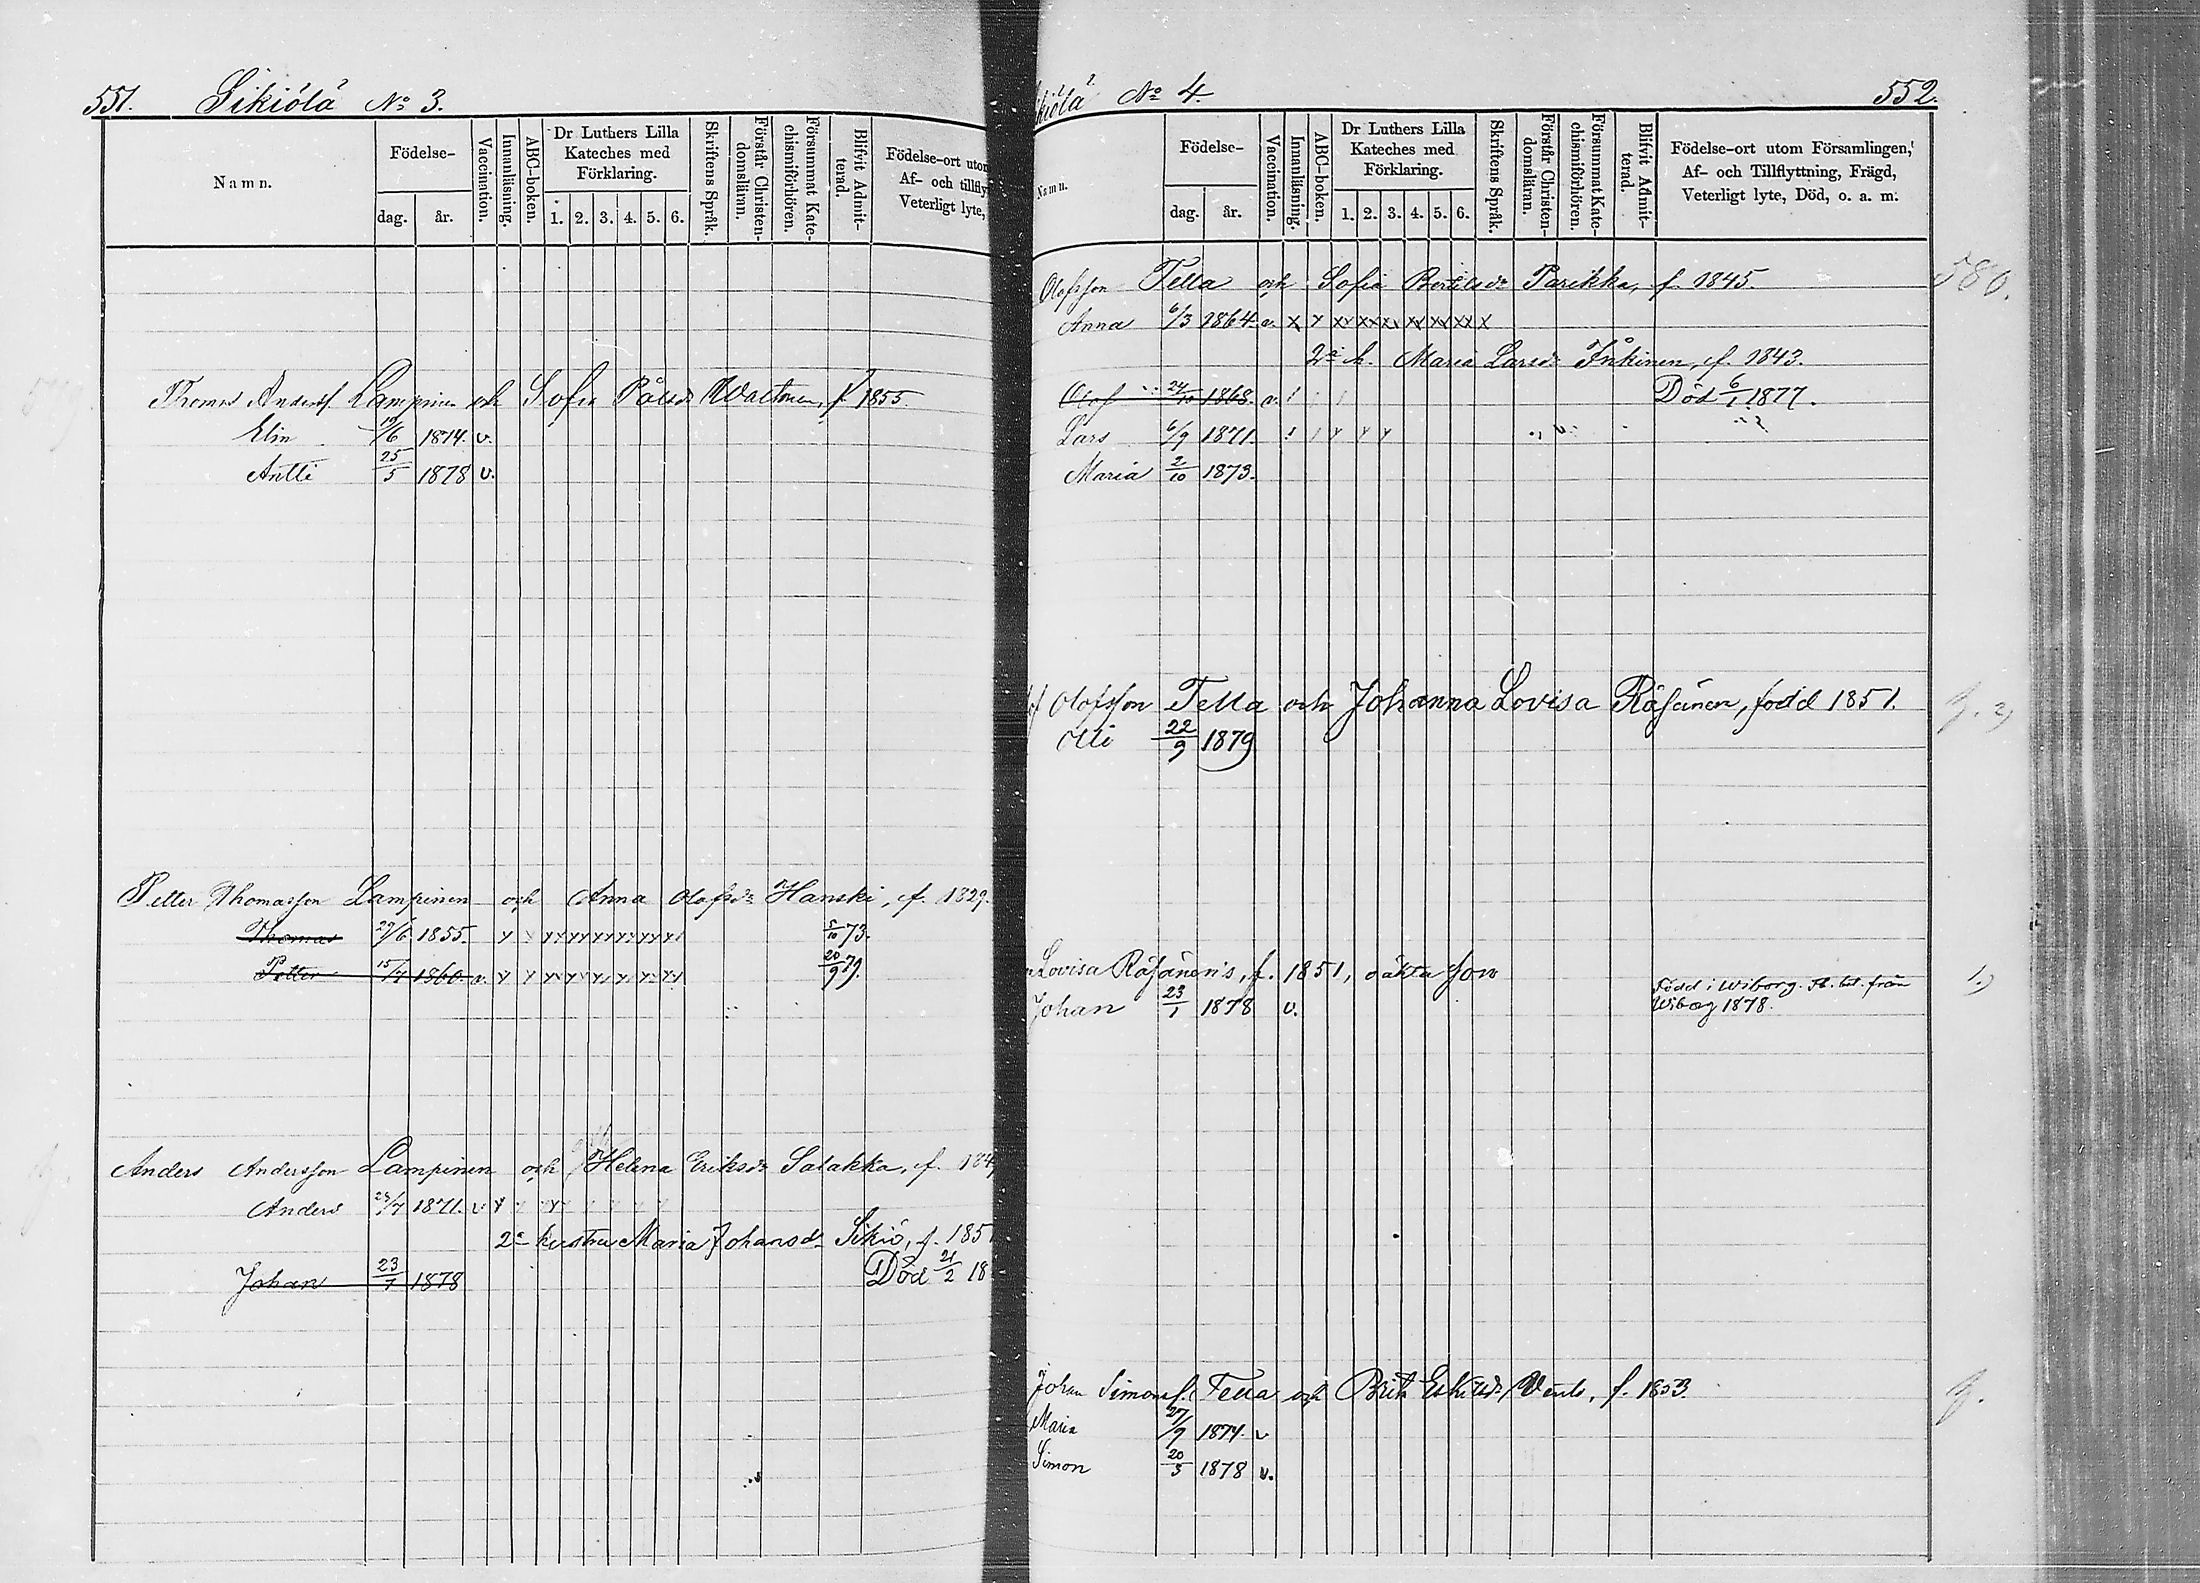 551. Sikiölä No 3.
Namn.
Födelse-
dag. år.
Vaccination.
Innanläsning.
ABC-boken.
Dr Luthers Lilla
Kateches med
Förklaring.
1. 2. 3. 4. 5. 6.
Skriftens Språk.
Förstår Christen-
domsläran.
Försummat Kate-
chismiförhören.
Blifvit Admit-
terad.
Födelse-ort utom
Af- och tillfly
Veterligt lyte,
Thomas Anderss. Lampinen och Sofia Pålsdr f. 1855.
Elin 19/6 1874. v.
Antti 25/5 1878 v.
Petter Thomasson Lampinen och Anna Olofsdr Hanski, f. 1829.
Thomas 29/6 1855. 5/10 73.
Petter 15/7 1860. v. 20/9 79.
Anders Andersson Lampinen och Helena Eriksdr Salakka, f. 184
Anders 23/7 1871. v
2a hustru Maria Johansdr Sikiö, f. 185
Johan 23/7 1878 Död 21/2 18
kiölä No 4. 552.
Namn.
Födelse-
dag. år.
Vaccination.
Innanläsning.
ABC-boken.
Dr Luthers Lilla
Kateches med
Förklaring.
1. 2. 3. 4. 5. 6.
Skriftens Språk.
Förstår Christen-
domsläran.
Försummat Kate-
chismiförhören.
Blifvit Admit-
terad.
Födelse-ort utom Församlingen,
Af- och Tillflyttning, Frägd,
Veterligt lyte, Död, o. a. m.
Olofsson Tella och Sofia Bertilsdr Parikka, f. 1845. 580.
Anna 6/3 1864. v.
2a h. Maria Larsdr Inkinen, f. 1843.
Olof 24/10 1868. v. Död 6/1 1877.
Lars 6/9 1871.
Maria 2/10 1873.
Olofsson Tella och Johanna Lovisa Räsänen, född 1851.
Olli 22/9 1879
Lovisa Räsänen's, f. 1851, oäkta son
Johan 23/1 1878 v.
Född i Wiborg. från
Wiborg 1878.
Johan Simonss. Tella och Brita Eskilsdr f. 1853.
Maria 27/9 1874. v
Simon 20/3 1878 v.